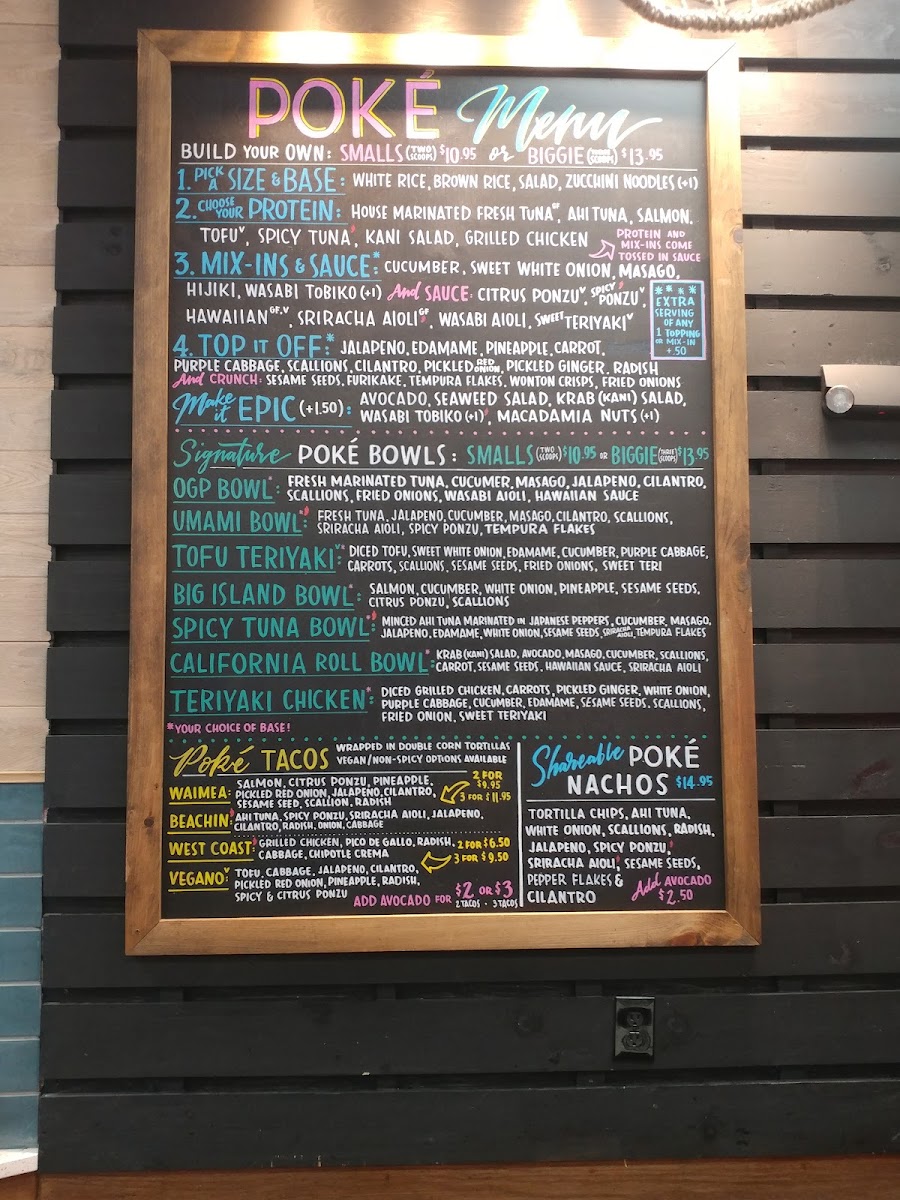 POKÉ Menu
BUILD YOUR OWN: SMALLS (TWO SCOOPS) $10.95 or BIGGIE (THREE SCOOPS) $13.95
1. PICK A SIZE & BASE: WHITE RICE, BROWN RICE, SALAD, ZUCCHINI NOODLES (+1)
2. CHOOSE YOUR PROTEIN: HOUSE MARINATED FRESH TUNA GF, AHI TUNA, SALMON,
TOFU V, SPICY TUNA, KANI SALAD, GRILLED CHICKEN
PROTEIN AND
MIX-INS COME
TOSSED IN SAUCE
3. MIX-INS & SAUCE:* CUCUMBER, SWEET WHITE ONION, MASAGO,
HIJIKI, WASABI TOBIKO (+1) And SAUCE: CITRUS PONZU V, SPICY PONZU V,
HAWAIIAN GF,V, SRIRACHA AIOLI GF, WASABI AIOLI, SWEET TERIYAKI V
* * * *
EXTRA
SERVING
OF ANY
1 TOPPING
OR MIX-IN
+.50
4. TOP IT OFF:* JALAPENO, EDAMAME, PINEAPPLE, CARROT,
PURPLE CABBAGE, SCALLIONS, CILANTRO, PICKLED RED ONION, PICKLED GINGER, RADISH
And CRUNCH: SESAME SEEDS, FURIKAKE, TEMPURA FLAKES, WONTON CRISPS, FRIED ONIONS
Make it EPIC (+1.50): AVOCADO, SEAWEED SALAD, KRAB (KANI) SALAD,
WASABI TOBIKO (+1), MACADAMIA NUTS (+1)
Signature POKÉ BOWLS: SMALLS (TWO SCOOPS) $10.95 OR BIGGIE (THREE SCOOPS) $13.95
OGP BOWL*: FRESH MARINATED TUNA, CUCUMER, MASAGO, JALAPENO, CILANTRO,
SCALLIONS, FRIED ONIONS, WASABI AIOLI, HAWAIIAN SAUCE
UMAMI BOWL*: FRESH TUNA, JALAPENO, CUCUMBER, MASAGO, CILANTRO, SCALLIONS,
SRIRACHA AIOLI, SPICY PONZU, TEMPURA FLAKES
TOFU TERIYAKI V*: DICED TOFU, SWEET WHITE ONION, EDAMAME, CUCUMBER, PURPLE CABBAGE,
CARROTS, SCALLIONS, SESAME SEEDS, FRIED ONIONS, SWEET TERI
BIG ISLAND BOWL*: SALMON, CUCUMBER, WHITE ONION, PINEAPPLE, SESAME SEEDS,
CITRUS PONZU, SCALLIONS
SPICY TUNA BOWL*: MINCED AHI TUNA MARINATED IN JAPANESE PEPPERS, CUCUMBER, MASAGO,
JALAPENO, EDAMAME, WHITE ONION, SESAME SEEDS, SRIRACHA AIOLI, TEMPURA FLAKES
CALIFORNIA ROLL BOWL*: KRAB (KANI) SALAD, AVOCADO, MASAGO, CUCUMBER, SCALLIONS,
CARROT, SESAME SEEDS, HAWAIIAN SAUCE, SRIRACHA AIOLI
TERIYAKI CHICKEN*: DICED GRILLED CHICKEN, CARROTS, PICKLED GINGER, WHITE ONION,
PURPLE CABBAGE, CUCUMBER, EDAMAME, SESAME SEEDS, SCALLIONS,
FRIED ONION, SWEET TERIYAKI
*YOUR CHOICE OF BASE!
Poké TACOS WRAPPED IN DOUBLE CORN TORTILLAS
VEGAN/NON-SPICY OPTIONS AVAILABLE
WAIMEA: SALMON, CITRUS PONZU, PINEAPPLE,
PICKLED RED ONION, JALAPENO, CILANTRO,
SESAME SEED, SCALLION, RADISH
2 FOR $9.95
3 FOR $11.95
BEACHIN': AHI TUNA, SPICY PONZU, SRIRACHA AIOLI, JALAPENO,
CILANTRO, RADISH, ONION, CABBAGE
WEST COAST: GRILLED CHICKEN, PICO DE GALLO, RADISH,
CABBAGE, CHIPOTLE CREMA
2 FOR $6.50
3 FOR $9.50
VEGANO V: TOFU, CABBAGE, JALAPENO, CILANTRO,
PICKLED RED ONION, PINEAPPLE, RADISH,
SPICY & CITRUS PONZU
ADD AVOCADO FOR $2 OR $3
2 TACOS · 3 TACOS
Shareable POKÉ
NACHOS $14.95
TORTILLA CHIPS, AHI TUNA,
WHITE ONION, SCALLIONS, RADISH,
JALAPENO, SPICY PONZU,
SRIRACHA AIOLI, SESAME SEEDS,
PEPPER FLAKES &
CILANTRO
Add AVOCADO
$2.50